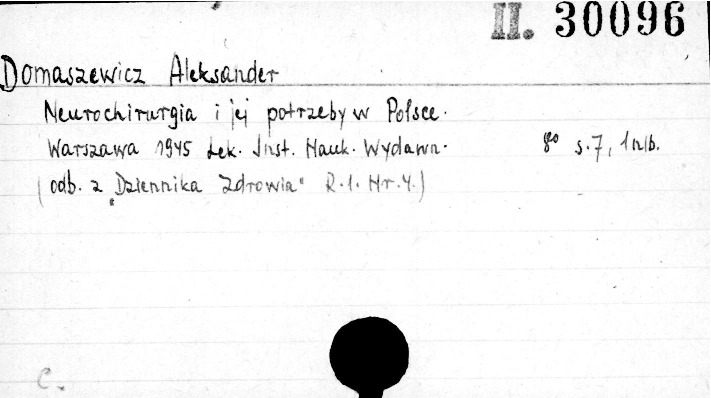 II. 30096
Domaszewicz Aleksander
Neurochirurgia i jej potrzeby w Polsce.
Warszawa 1945 Lek. Inst. Nauk. Wydawn. 8° s.7, 1 nlb.
(odb. z "Dziennika Zdrowia" R.1. Nr.4.)
C.